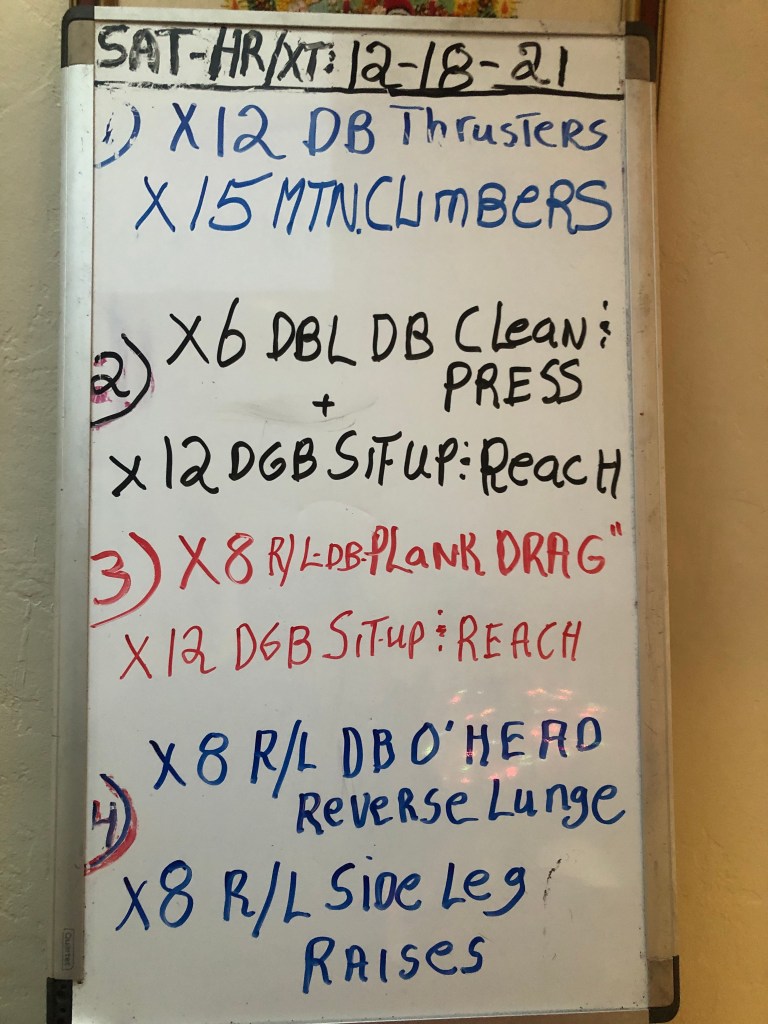 SAT-HR/XT: 12-18-21
1) X12 DB THRUSTERS
X15 MTN. CLIMBERS
2) X6 DBL DB Clean &
PRESS
+
X12 DGB SITUP & Reach
3) X8 R/L-DB-PLANK DRAG"
X12 DGB SIT-UP & REACH
4) X8 R/L DB O'HEAD
Reverse Lunge
X8 R/L Side Leg
RAISES
Quartet